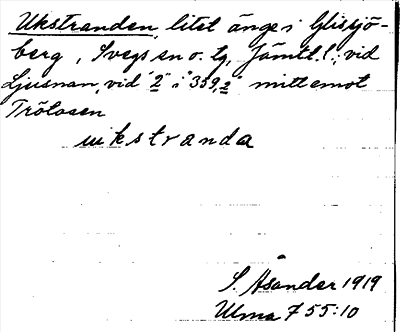 Ukstranden, litet änge i Glissjö-
berg, Svegs sn o. tg, Jämtl. l.; vid
Ljusnan, vid "2" i "359,2" mitt emot
Trölosen
ukstranda
S. Åsander 1919
Ulma 755:10